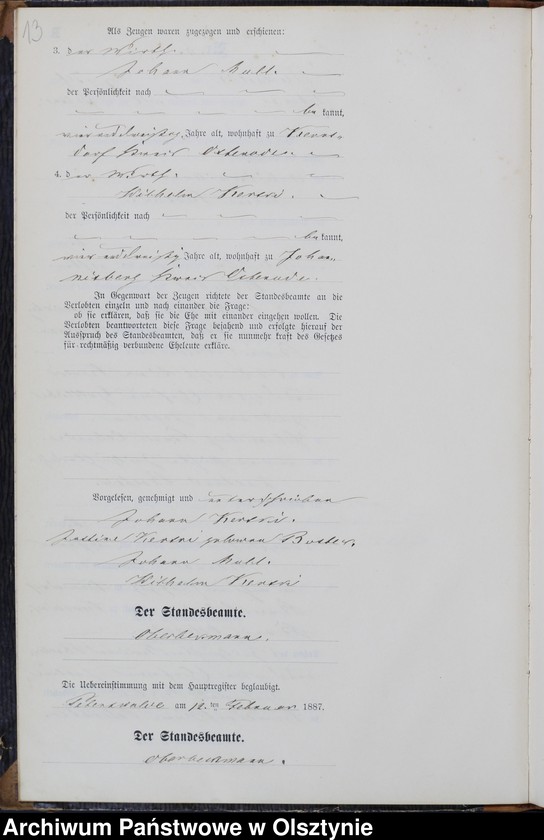 13
Als Zeugen waren zugezogen und erschienen:
3. der Wirth
Johann Mall.
der Persönlichkeit nach
bekannt,
vierunddreißig Jahre alt, wohnhaft zu
dorf Kreis Osterode.
4. der Wirth.
Wilhelm
der Persönlichkeit nach
bekannt,
vierunddreißig Jahre alt, wohnhaft zu Johan-
nisberg Kreis Osterode.
In Gegenwart der Zeugen richtete der Standesbeamte an die
Verlobten einzeln und nach einander die Frage:
ob sie erklären, daß sie die Ehe mit einander eingehen wollen. Die
Verlobten beantworteten diese Frage bejahend und erfolgte hierauf der
Ausspruch des Standesbeamten, daß er sie nunmehr kraft des Gesetzes
für rechtmäßig verbundene Eheleute erkläre.
Vorgelesen, genehmigt und unterschrieben
Johann
geboren
Johann Mall.
Wilhelm
Der Standesbeamte.
Die Uebereinstimmung mit dem Hauptregister beglaubigt.
am 12. ten Februar 1887.
Der Standesbeamte.
Archiwum Państwowe w Olsztynie